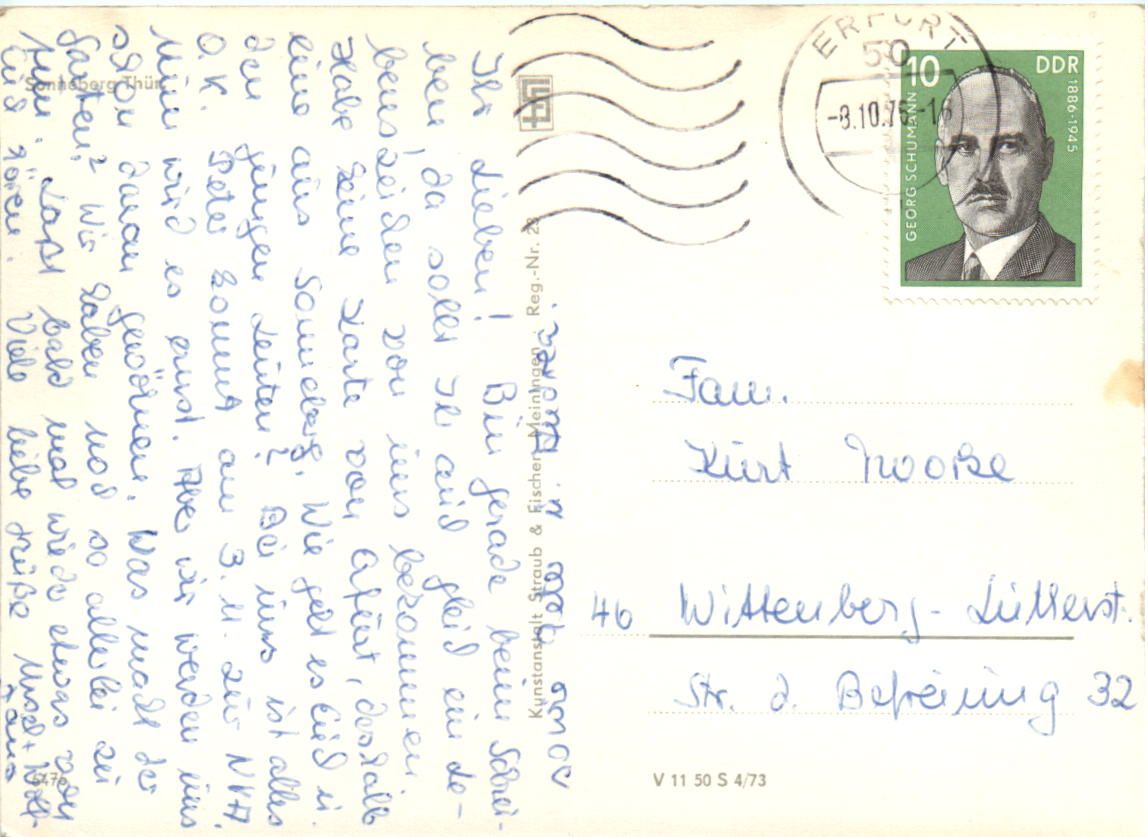 Ihr Lieben! Bin gerade beim Schrei-
ben, da sollt Ihr auch gleich ein Le-
benszeichen von uns bekommen.
Habe keine Karte von Erfurt, deshalb
eine aus Sonneberg. Wie geht es Euch u.
den jungen Leuten? Bei uns ist alles
O.K. Peter kommt am 3.11. zur NVA.
Nun wird es ernst. Aber wir werden uns
schon daran gewöhnen. Was macht der
Garten? Wir haben noch so allerlei zu
tun. Laßt bald mal wieder etwas von
Euch hören. Viele liebe Grüße
u. Andrea.
Sonneberg Thür.
Kunstanstalt Straub & Fischer Meiningen Reg.-Nr. 28
ERFURT
50
-8.10.76-16
10
DDR
GEORG SCHUMANN
1886-1945
Fam.
Kurt
46 Wittenberg-Lutherst.
Str. d. Befreiung 32
V 11 50 S 4/73